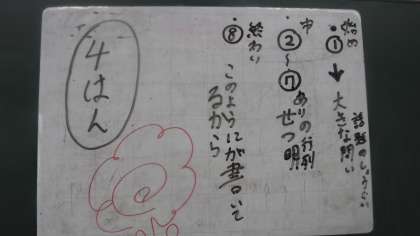 始め
・①→大きな問い
話題のしょうかい
中
②〜⑦ありの行列
せつ明
終わり
・⑧このようにが書いて
るから
4はん